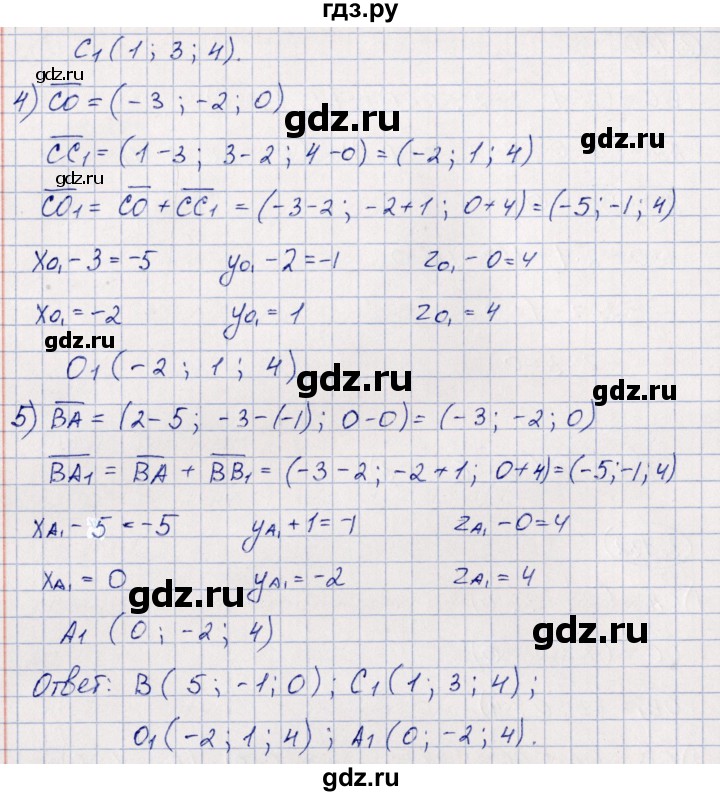 гдз.ру
C₁(1; 3; 4).
gdz.ru
4) CO̅ = (-3; -2; 0)
gdz.ru
gdz.ru
CC₁ = (1-3; 3-2; 4-0) = (-2; 1; 4)
gdz.ru
CO₁ = CO + CC₁ = (-3-2; -2+1; 0+4) = (-5; -1; 4)
xo₁ - 3 = -5 yo₁ - 2 = -1 zo₁ - 0 = 4
xo₁ = -2 yo₁ = 1 zo₁ = 4
gdz.ru
O₁(-2; 1; 4)
gdz.ru
gdz.ru
5) BA = (2-5; -3-(-1); 0-0) = (-3; -2; 0)
BA₁ = BA + BB₁ = (-3-2; -2+1; 0+4) = (-5; -1; 4)
xA₁ - 5 = -5 yA₁ + 1 = -1 zA₁ - 0 = 4
xA₁ = 0 yA₁ = -2 zA₁ = 4
gdz.ru
A₁ (0; -2; 4)
gdz.ru
Ответ: B(5; -1; 0); C₁(1; 3; 4);
gdz.ru
O₁(-2; 1; 4); A₁(0; -2; 4).
gdz.ru